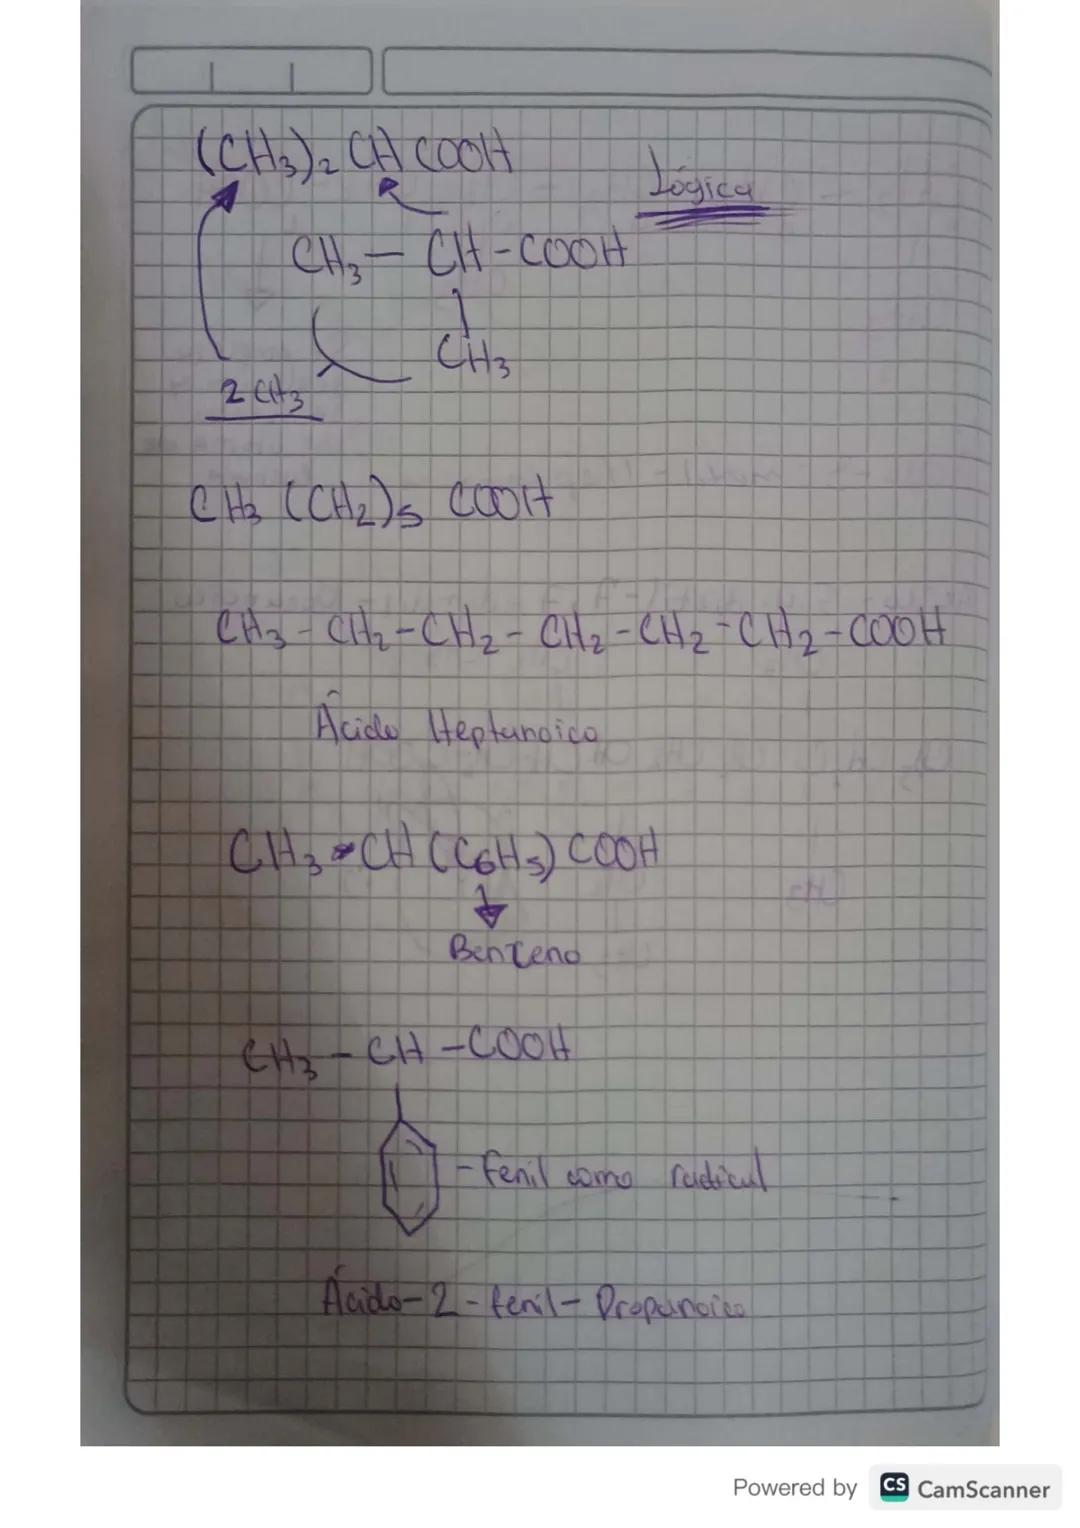 (CH₃)₂ CH COOH
Lógica
CH₃ — CH - COOH
CH₃
2 CH₃
CH₃ (CH₂)₅ COOH
CH₃ - CH₂ - CH₂ - CH₂ - CH₂ - CH₂ - COOH
Ácido Heptanoico
CH₃ - CH (C₆H₅) COOH
Benceno
CH₃ - CH - COOH
- Fenil como radical
Ácido - 2 - fenil - Propanoico
Powered by CS CamScanner